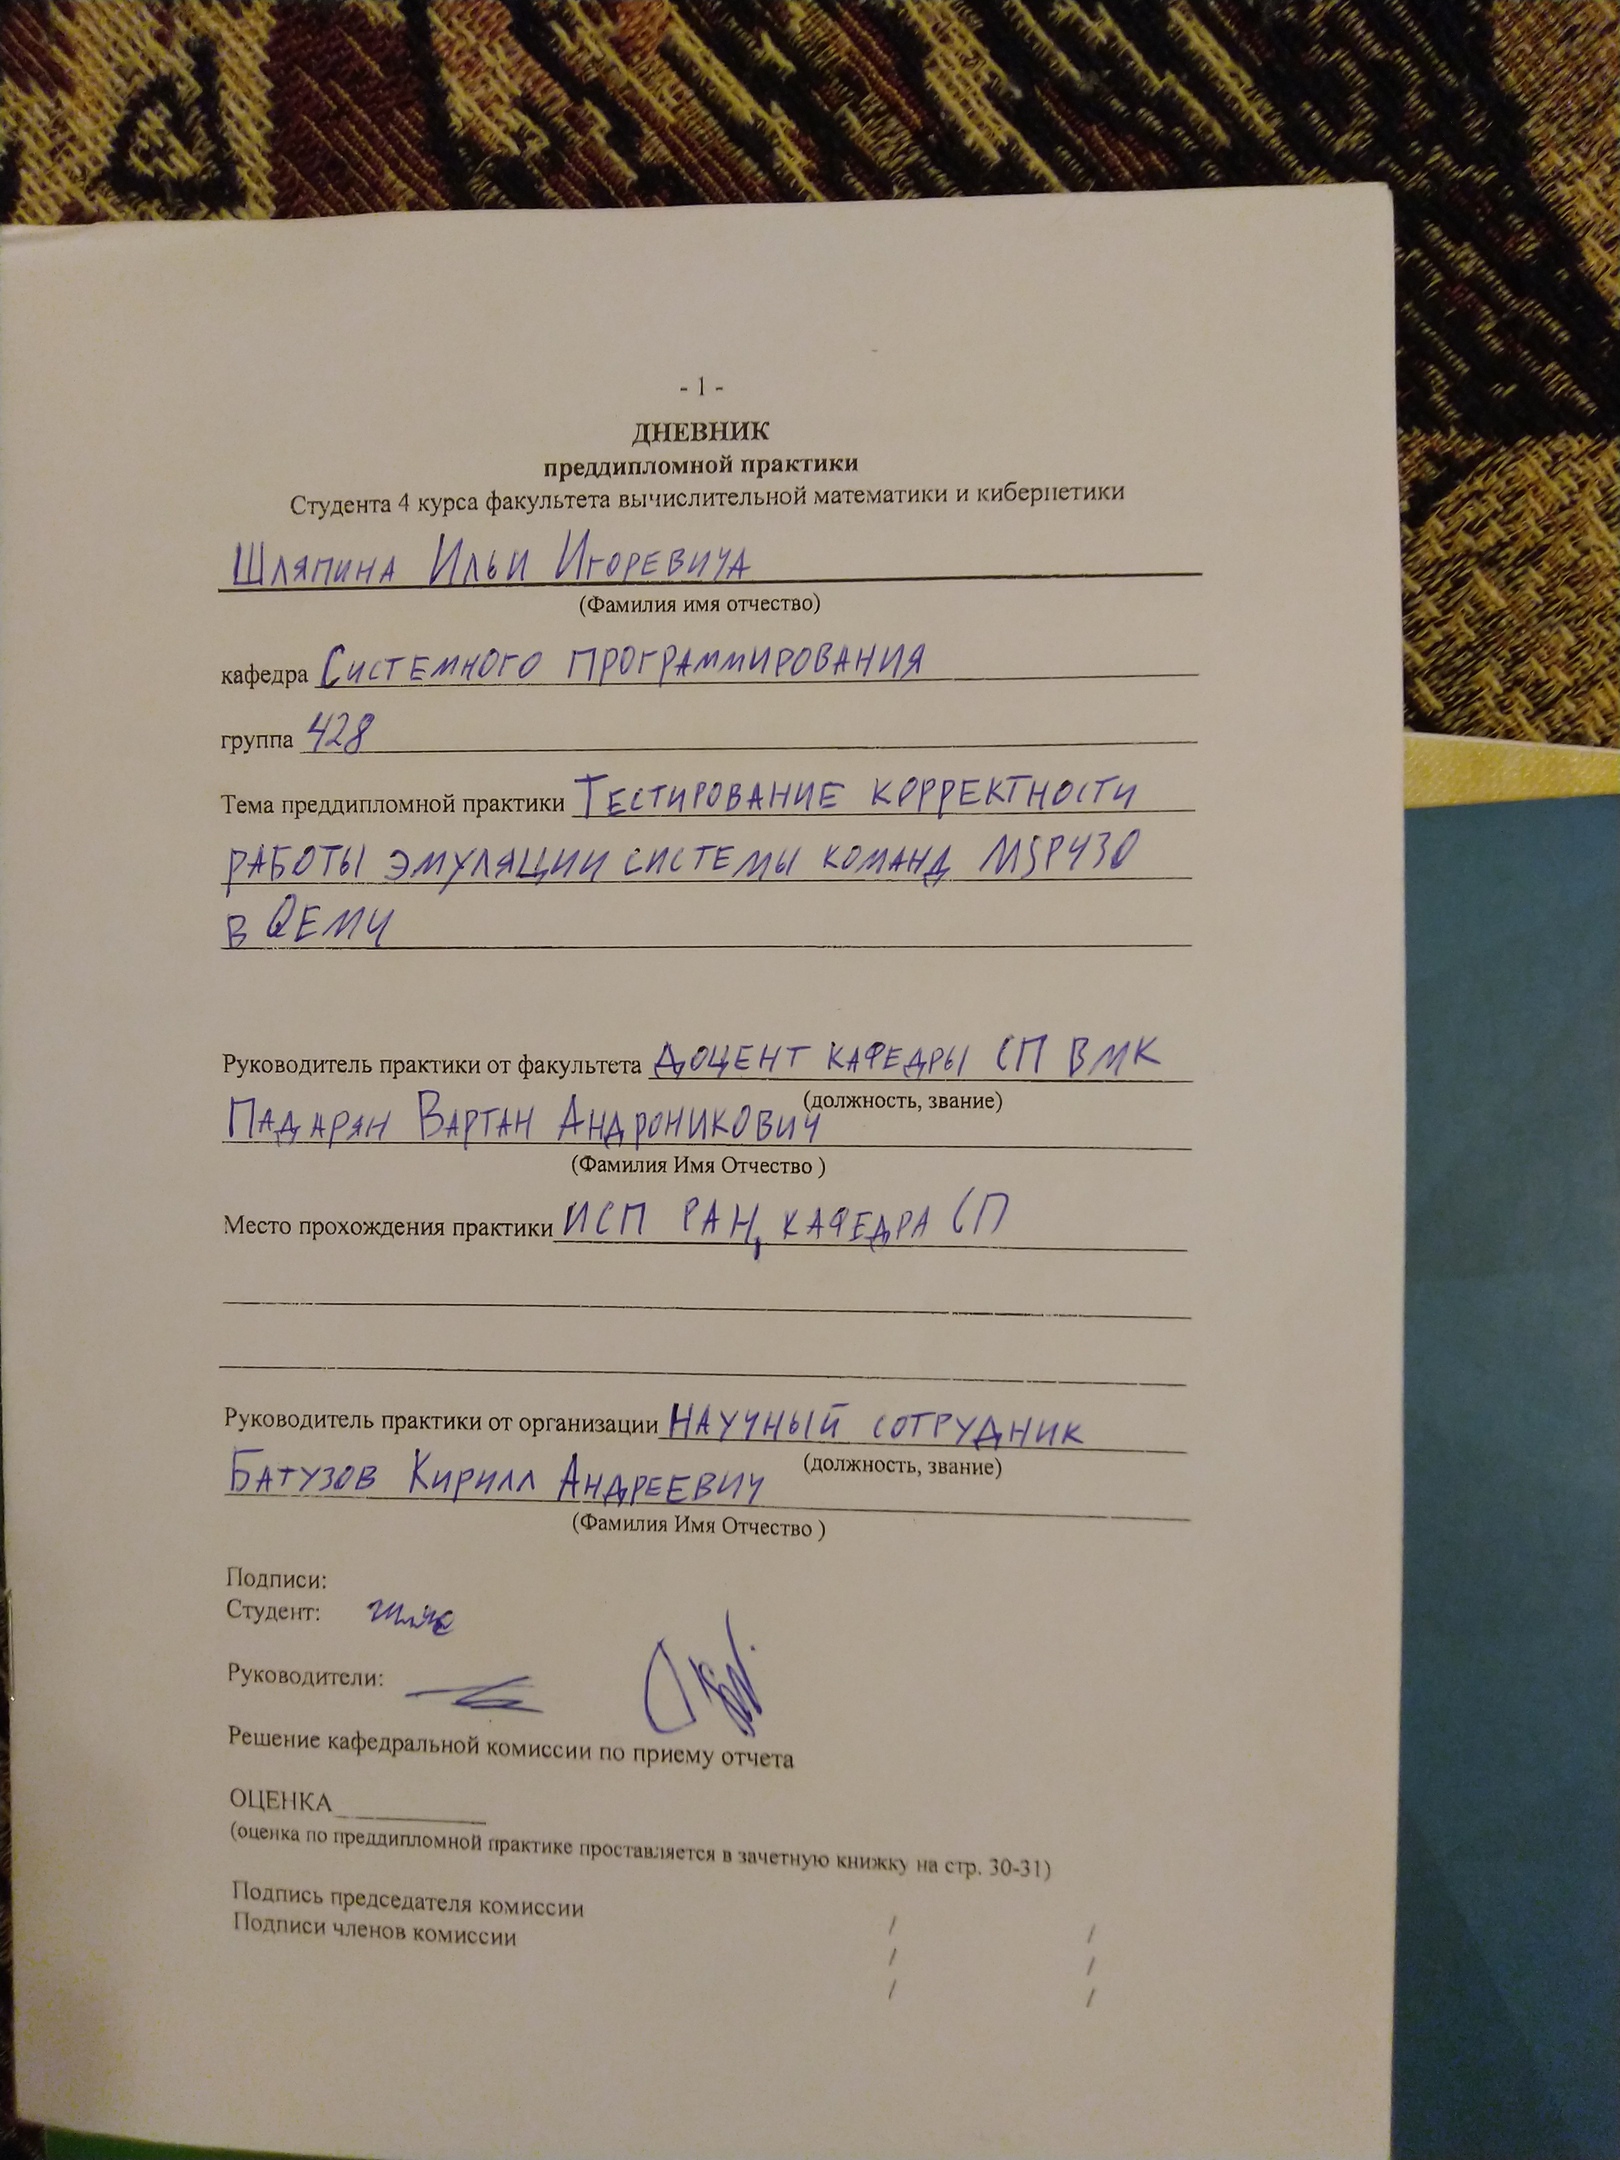 - 1 -
ДНЕВНИК
преддипломной практики
Студента 4 курса факультета вычислительной математики и кибернетики
Шляпина Ильи Игоревича
(Фамилия имя отчество)
кафедра Системного программирования
группа 428
Тема преддипломной практики Тестирование корректности
работы эмуляции системы команд MSP430
в QEMU
Руководитель практики от факультета доцент кафедры СП ВМК
(должность, звание)
Падарян Вартан Андроникович
(Фамилия Имя Отчество )
Место прохождения практики ИСП РАН, кафедра СП
Руководитель практики от организации научный сотрудник
(должность, звание)
Батузов Кирилл Андреевич
(Фамилия Имя Отчество )
Подписи:
Студент:
Руководители:
Решение кафедральной комиссии по приему отчета
ОЦЕНКА___________
(оценка по преддипломной практике проставляется в зачетную книжку на стр. 30-31)
Подпись председателя комиссии / /
Подписи членов комиссии / /
/ /